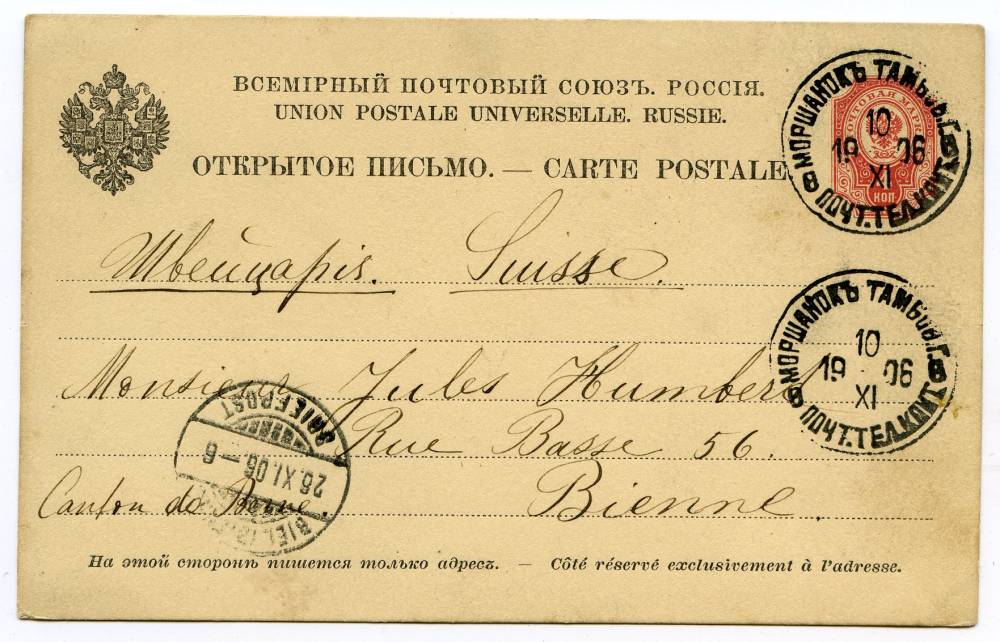 ВСЕМІРНЫЙ ПОЧТОВЫЙ СОЮЗЪ. РОССІЯ.
UNION POSTALE UNIVERSELLE. RUSSIE.
ОТКРЫТОЕ ПИСЬМО. — CARTE POSTALE.
ПОЧТОВАЯ МАРКА
КОП
МОРШАНСКЪ ТАМБОВ.Г.
10
19 06
XI
ПОЧТ.ТЕЛ.КОНТ.
Швейцарія. Suisse.
МОРШАНСКЪ ТАМБОВ.Г.
10
19 06
XI
ПОЧТ.ТЕЛ.КОНТ.
Monsieur Jules Humbert
Rue Basse 56.
Canton de Berne. Bienne.
BRIEFPOST
26.XI.06—6
BIEL
На этой сторонѣ пишется только адресъ. — Côté réservé exclusivement à l'adresse.